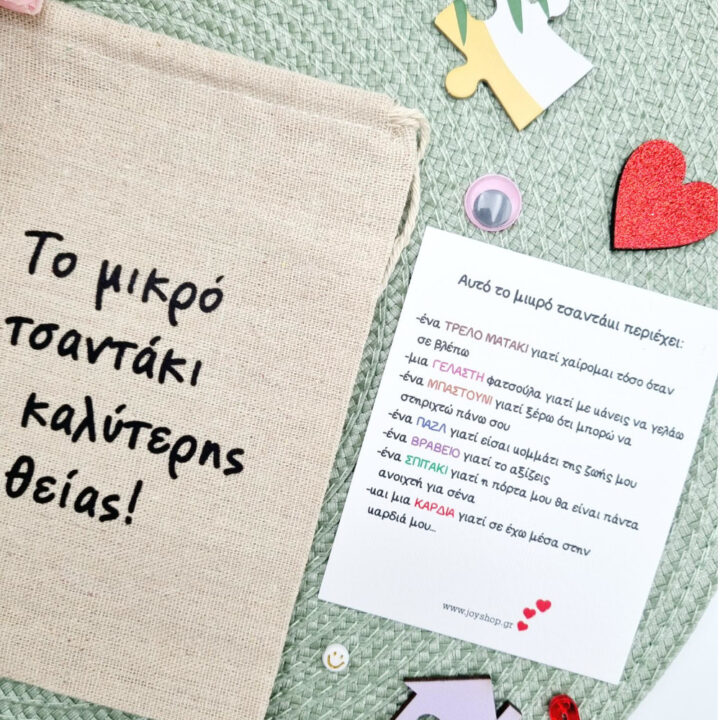 Το μικρό
τσαντάκι
καλύτερης
θείας!
Αυτό το μικρό τσαντάκι περιέχει:
-ένα ΤΡΕΛΟ ΜΑΤΑΚΙ γιατί χαίρομαι τόσο όταν
σε βλέπω
-μια ΓΕΛΑΣΤΗ φατσούλα γιατί με κάνεις να γελάω
-ένα ΜΠΑΣΤΟΥΝΙ γιατί ξέρω ότι μπορώ να
στηριχτώ πάνω σου
-ένα ΠΑΖΛ γιατί είσαι κομμάτι της ζωής μου
-ένα ΒΡΑΒΕΙΟ γιατί το αξίζεις
-ένα ΣΠΙΤΑΚΙ γιατί η πόρτα μου θα είναι πάντα
ανοιχτή για σένα
-και μια ΚΑΡΔΙΑ γιατί σε έχω μέσα στην
καρδιά μου...
www.joyshop.gr